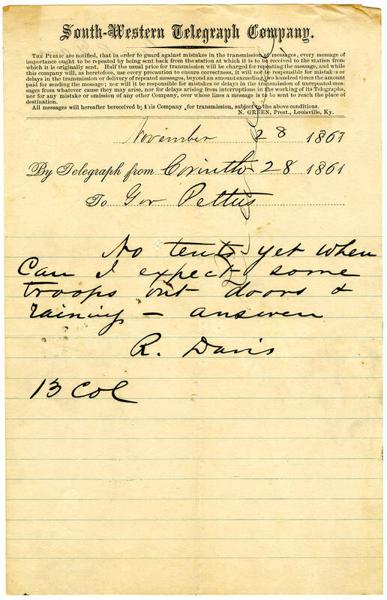 South-Western Telegraph Company.
THE PUBLIC are notified, that in order to guard against mistakes in the transmission of messages, every message of
importance ought to be repeated by being sent back from the station at which it is to be received to the station from
which it is originally sent. Half the usual price for transmission will be charged for repeating the message, and while
this company will, as heretofore, use every precaution to ensure correctness, it will not be responsible for mistakes or
delays in the transmission or delivery of repeated messages, beyond an amount exceeding five hundred times the amount
paid for sending the message; nor will it be responsible for mistakes or delays in the transmission of unrepeated mes-
sages from whatever cause they may arise, nor for delays arising from interruptions in the working of its Telegraphs,
nor for any mistake or omission of any other Company, over whose lines a message is to be sent to reach the place of
destination.
All messages will hereafter be received by this Company for transmission, subject to the above conditions.
N. GREEN, Prest., Louisville, Ky.
November 28 1861
By Telegraph from Corinth 28 1861
To Gov Pettus
No tents yet when
Can I expect some
troops out doors &
raining - answer
R. Davis
13 Col